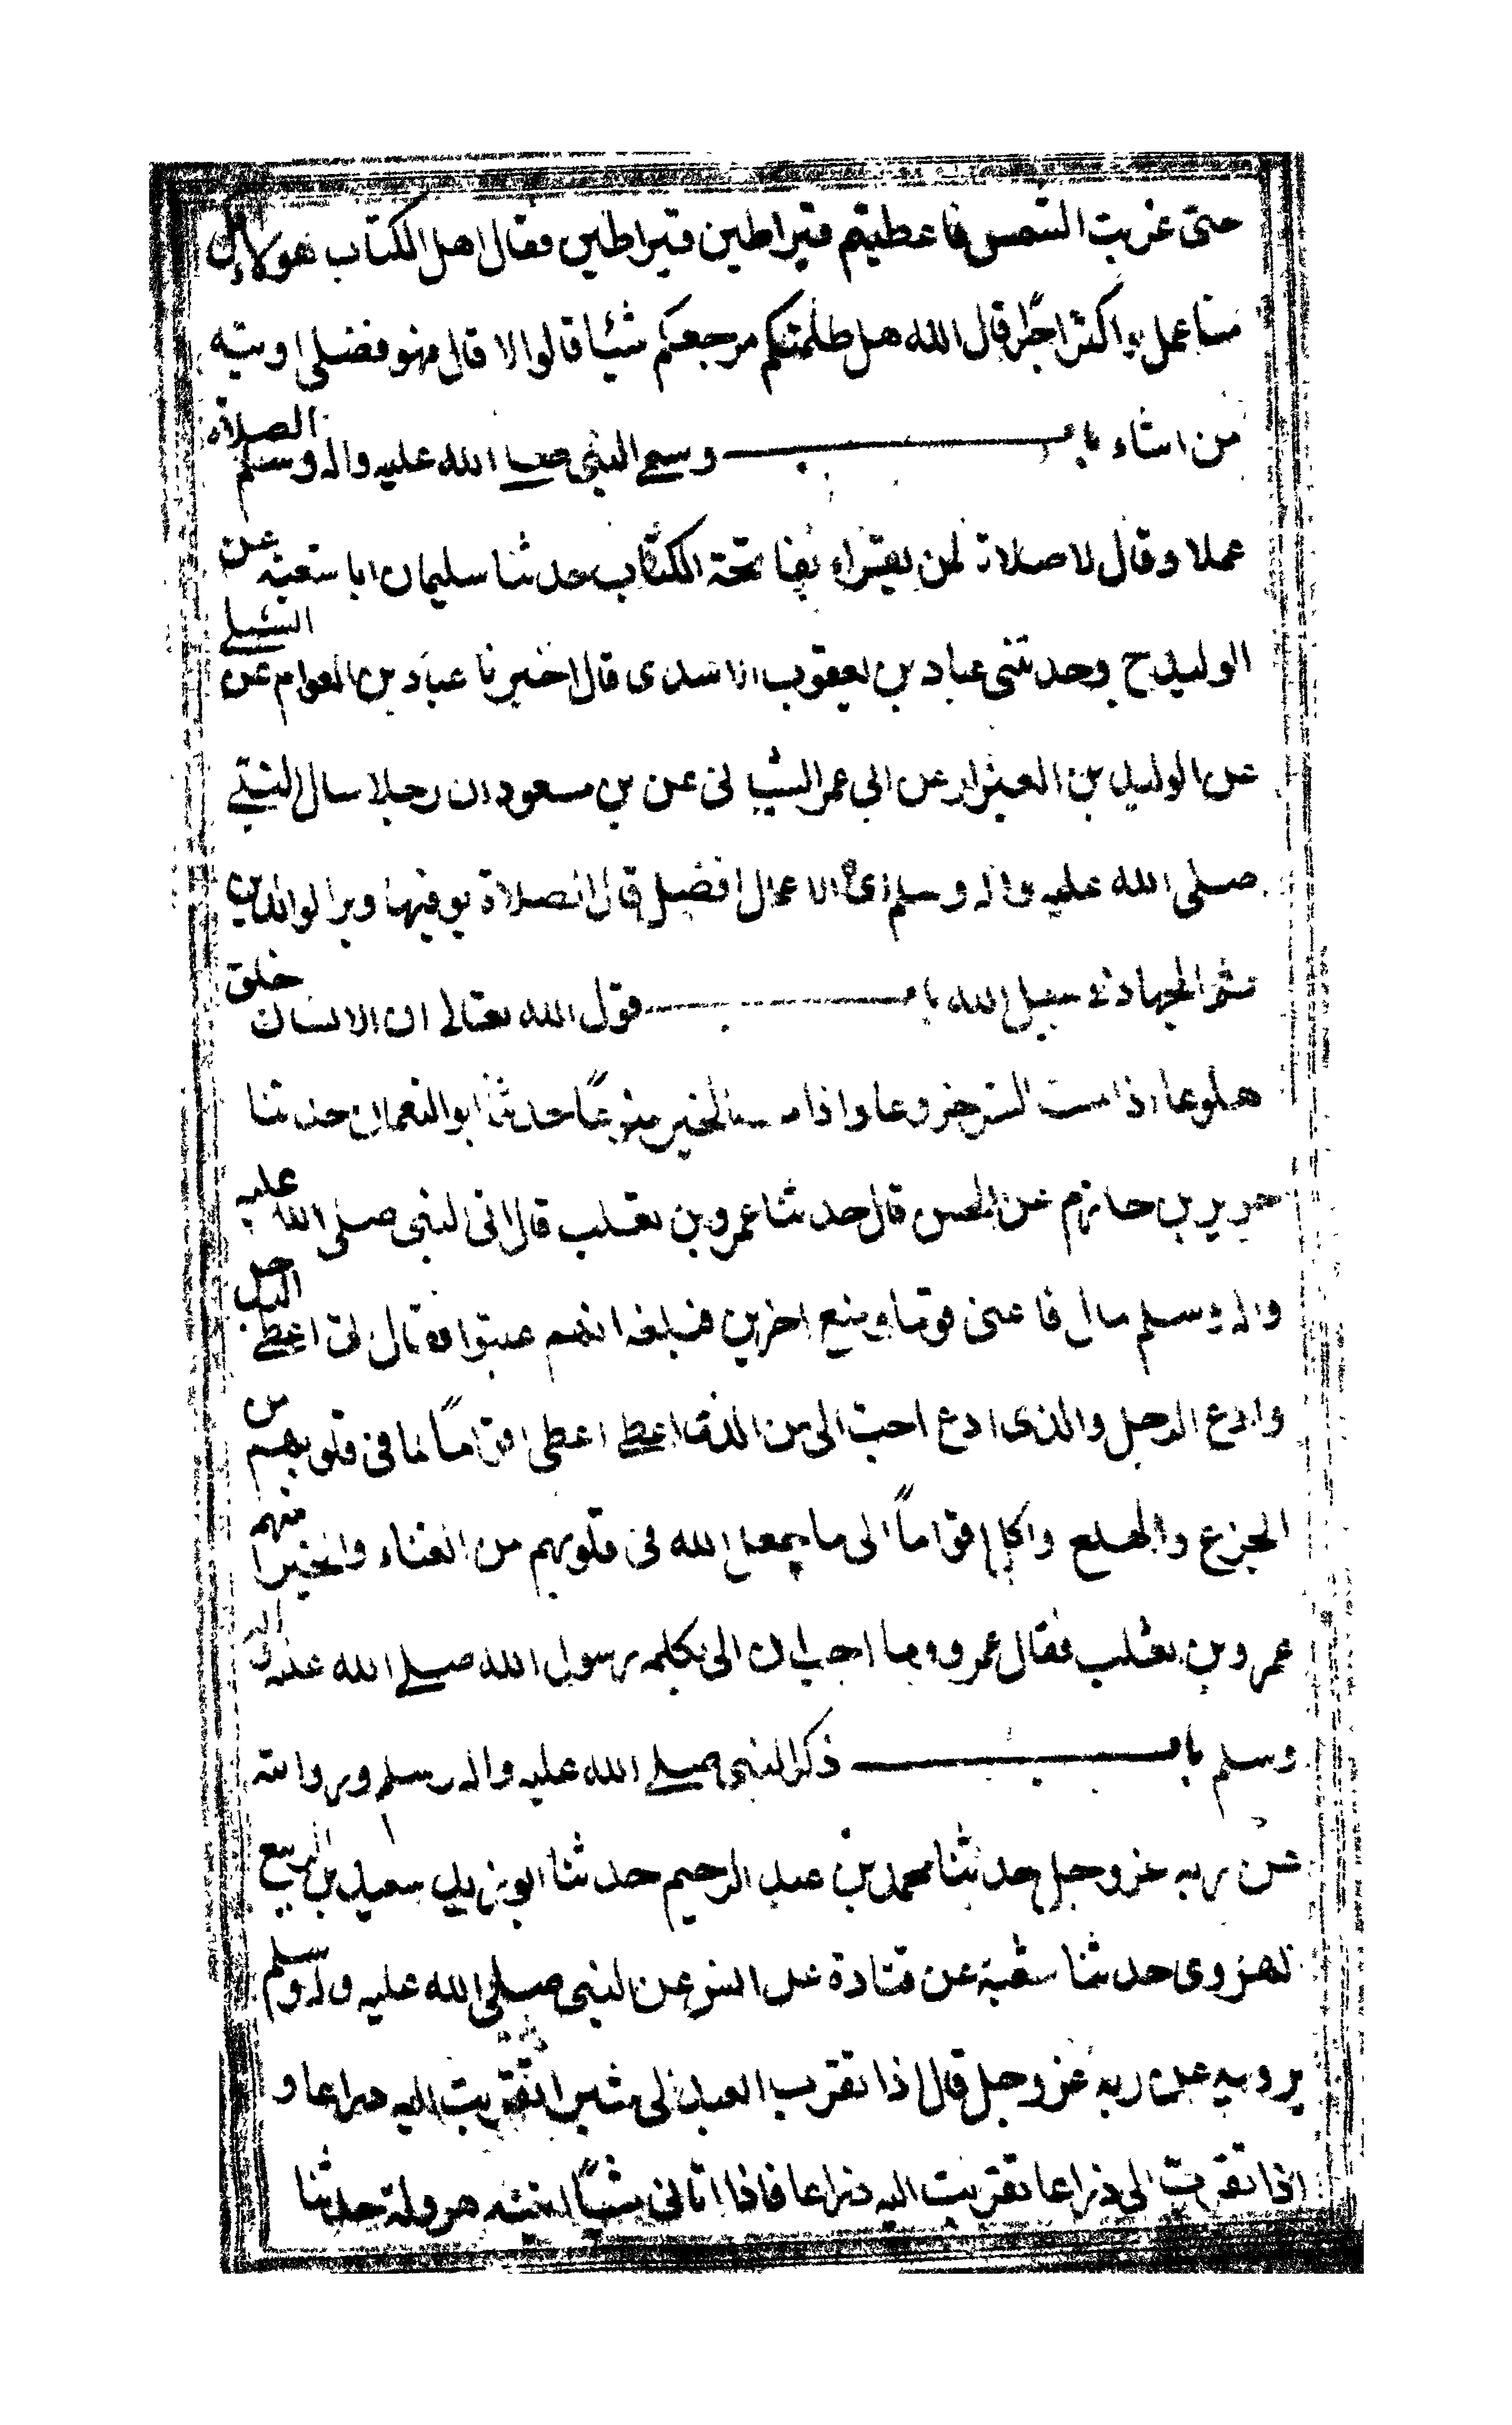 حتى غربت الشمس فاعطيتم قيراطين قيراطين فقال اهل الكتاب هولاء
منا عملا واكثر اجرا قال الله هل ظلمتكم من حقكم شيئا قالوا لا قال فهو فضلى اوتيه
من اشاء باب وسمى النبى صلى الله عليه واله وسلم الصلاة
عملا وقال لا صلاة لمن يقراء بفاتحة الكتاب حدثنا سليمان ابا شعبة عن
الوليد ح وحدثنى عباد بن يعقوب الاسدى قال اخبرنا عباد بن العوام عن الشيبانى
عن الوليد بن العيزار عن ابى عمر الشيبانى عن بن مسعود ان رجلا سال النبى
صلى الله عليه واله وسلم اى الاعمال افضل قال الصلاة لوقتها وبر الوالدين
ثم الجهاد فى سبيل الله باب قول الله تعالى ان الانسان خلق
هلوعا اذا مسه الشر جزوعا واذا مسه الخير منوعًا حدثنا ابو النعمان حدثنا
جرير بن حازم عن الحسن قال حدثنا عمرو بن تغلب قال اتى النبى صلى الله عليه
واله وسلم مال فاعطى قوما ومنع اخرين فبلغه انهم عتبوا فقال انى اعطى الرجل
وادع الرجل والذى ادع احب الى من الذى اعطى اعطى اقوامًا لما فى قلوبهم من
الجزع والهلع واكل اقوامًا الى ما جعل الله فى قلوبهم من الغناء والخير منهم
عمرو بن تغلب فقال عمرو وما احب ان الى بكلمة رسول الله صلى الله عليه واله
وسلم باب ذكر النبى صلى الله عليه واله وسلم وروايته
عن ربه عز وجل حدثنا محمد بن عبد الرحيم حدثنا ابو زيد سعيد بن الربيع
الهروى حدثنا شعبة عن قتادة عن انس عن النبى صلى الله عليه واله وسلم
يرويه عن ربه عز وجل قال اذا تقرب العبد الى شبرا تقربت اليه ذراعا و
اذا تقرب الى ذراعا تقربت اليه ذراعا فاذا اتانى مشيًا اتيته هرولة حدثنا